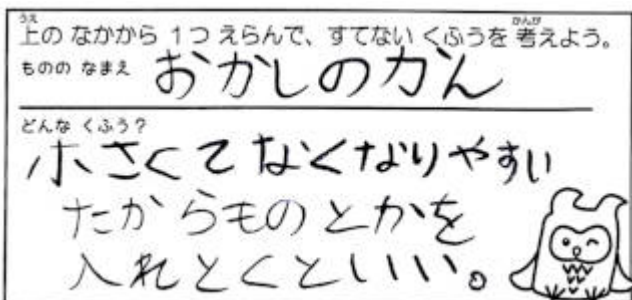 上の なかから 1つ えらんで、すてない くふうを 考えよう。
ものの なまえ おかしのカん
どんな くふう?
小さくて なくなりやすい
たからものとかを
入れとくといい。